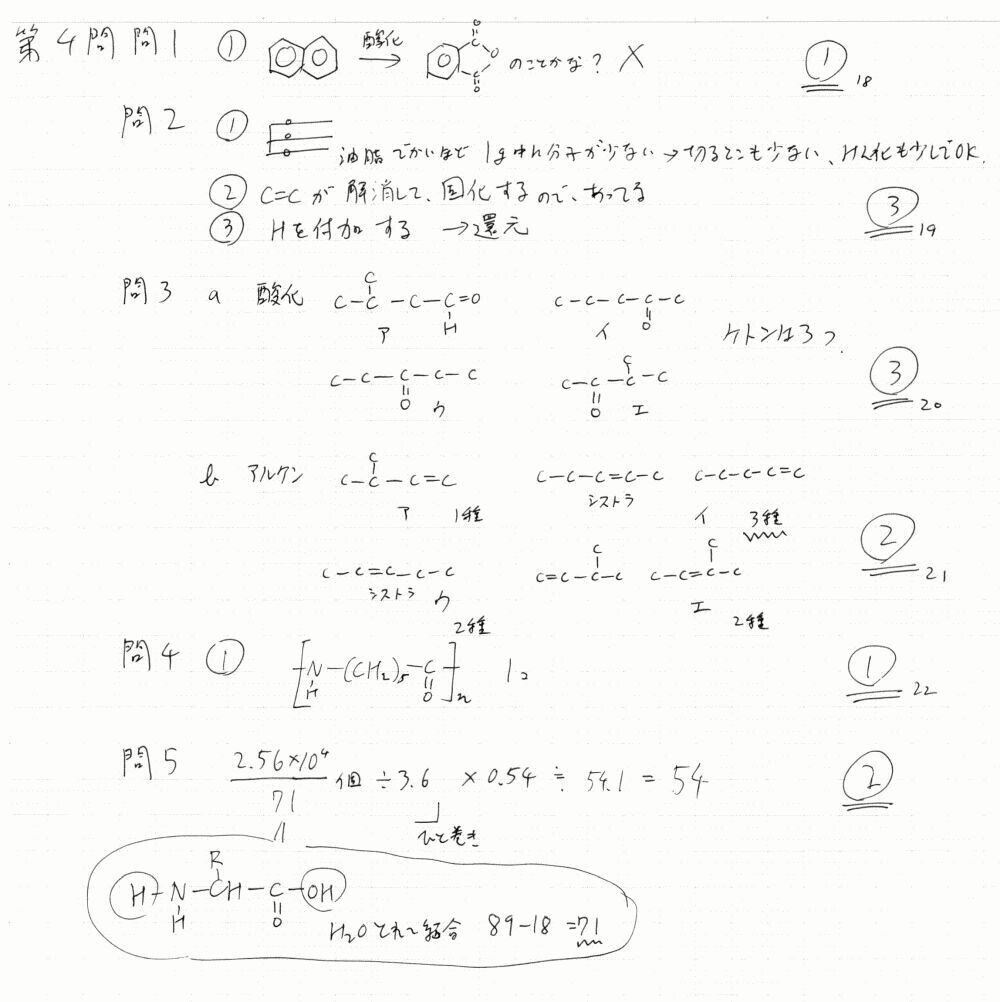 第4問 問1 ① 酸化 のことかな? × ① 18
問2 ① 油脂でかいほど 1g中の分子が少ない→切るとこも少ない、けん化も少しでOK.
② C=Cが解消して、固化するので、あってる
③ Hを付加する →還元 ③ 19
問3 a 酸化 C-C-C-C=O C C H ア C-C-C-C-C O イ ケトンは3つ.
C-C-C-C-C O ウ C-C-C-C C O エ ③ 20
b アルケン C-C-C=C C ア 1種 C-C-C=C-C シストラ C-C-C-C=C イ 3種
C-C=C-C-C シストラ ウ 2種 C=C-C-C C C-C=C-C C エ 2種 ② 21
問4 ① [N-(CH₂)₅-C]n H O ① 22
問5 2.56×10⁴/71 個 ÷3.6 ×0.54 ≒ 54.1 = 54 ②
ひと巻き
H-N-CH-C-OH R H O
H₂Oとれて結合 89-18=71